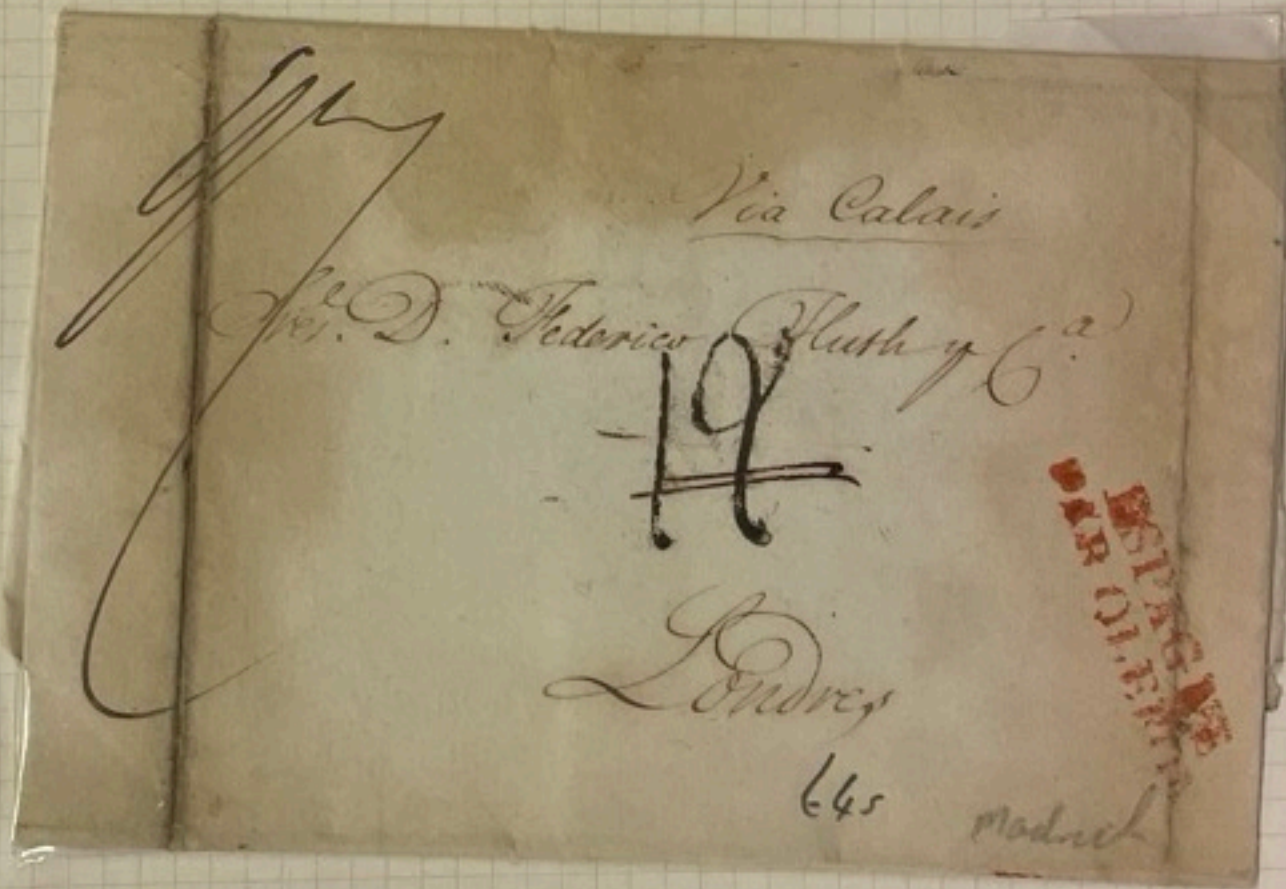 Via Calais
Sres. D. Federico Huth y Ca.
19
Londres
ESPAGNE
PAR OLERON
64s
Madrid